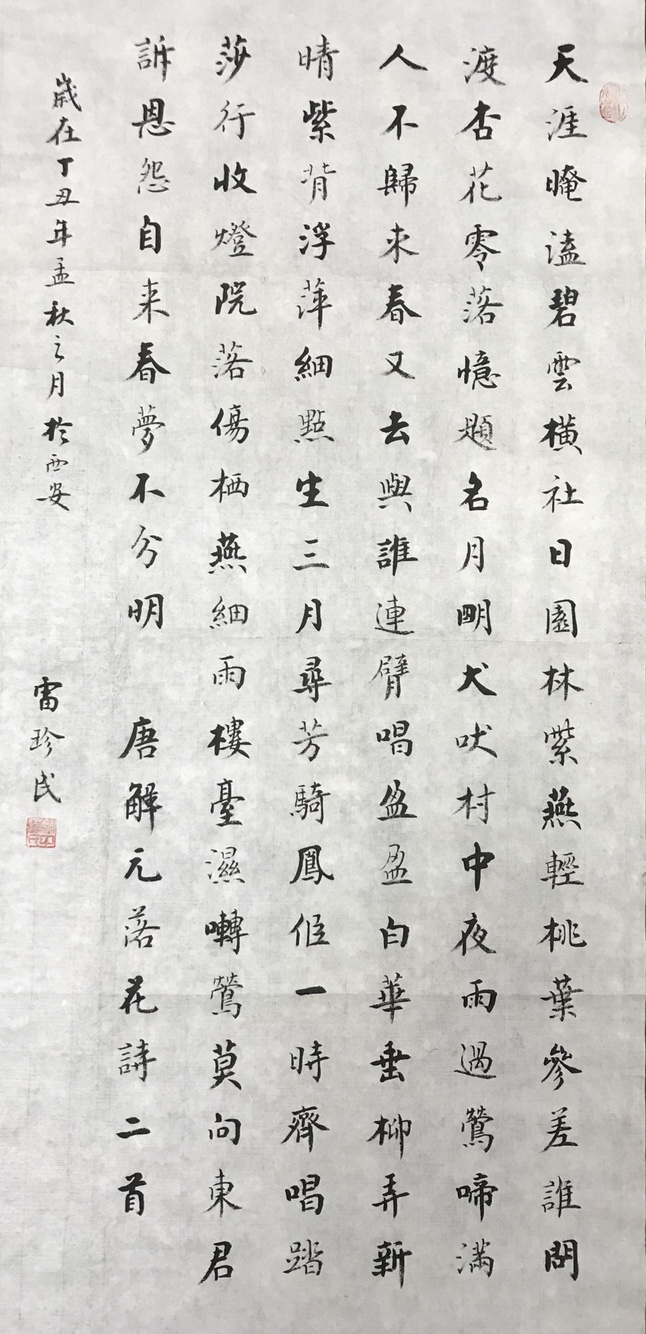 天涯晻溘碧雲橫社日園林紫燕輕桃葉參差誰問
渡杏花零落憶題名月明犬吠村中夜雨過鶯啼滿
人不歸來春又去與誰連臂唱盈盈白華垂柳弄新
晴紫背浮萍細點生三月尋芳騎鳳一時齊唱踏
莎行收燈院落傷栖燕細雨樓臺濕囀鶯莫向東君
訴恩怨自来春夢不分明 唐解元落花詩二首
歲在丁丑年孟秋之月於西安
雷珍民